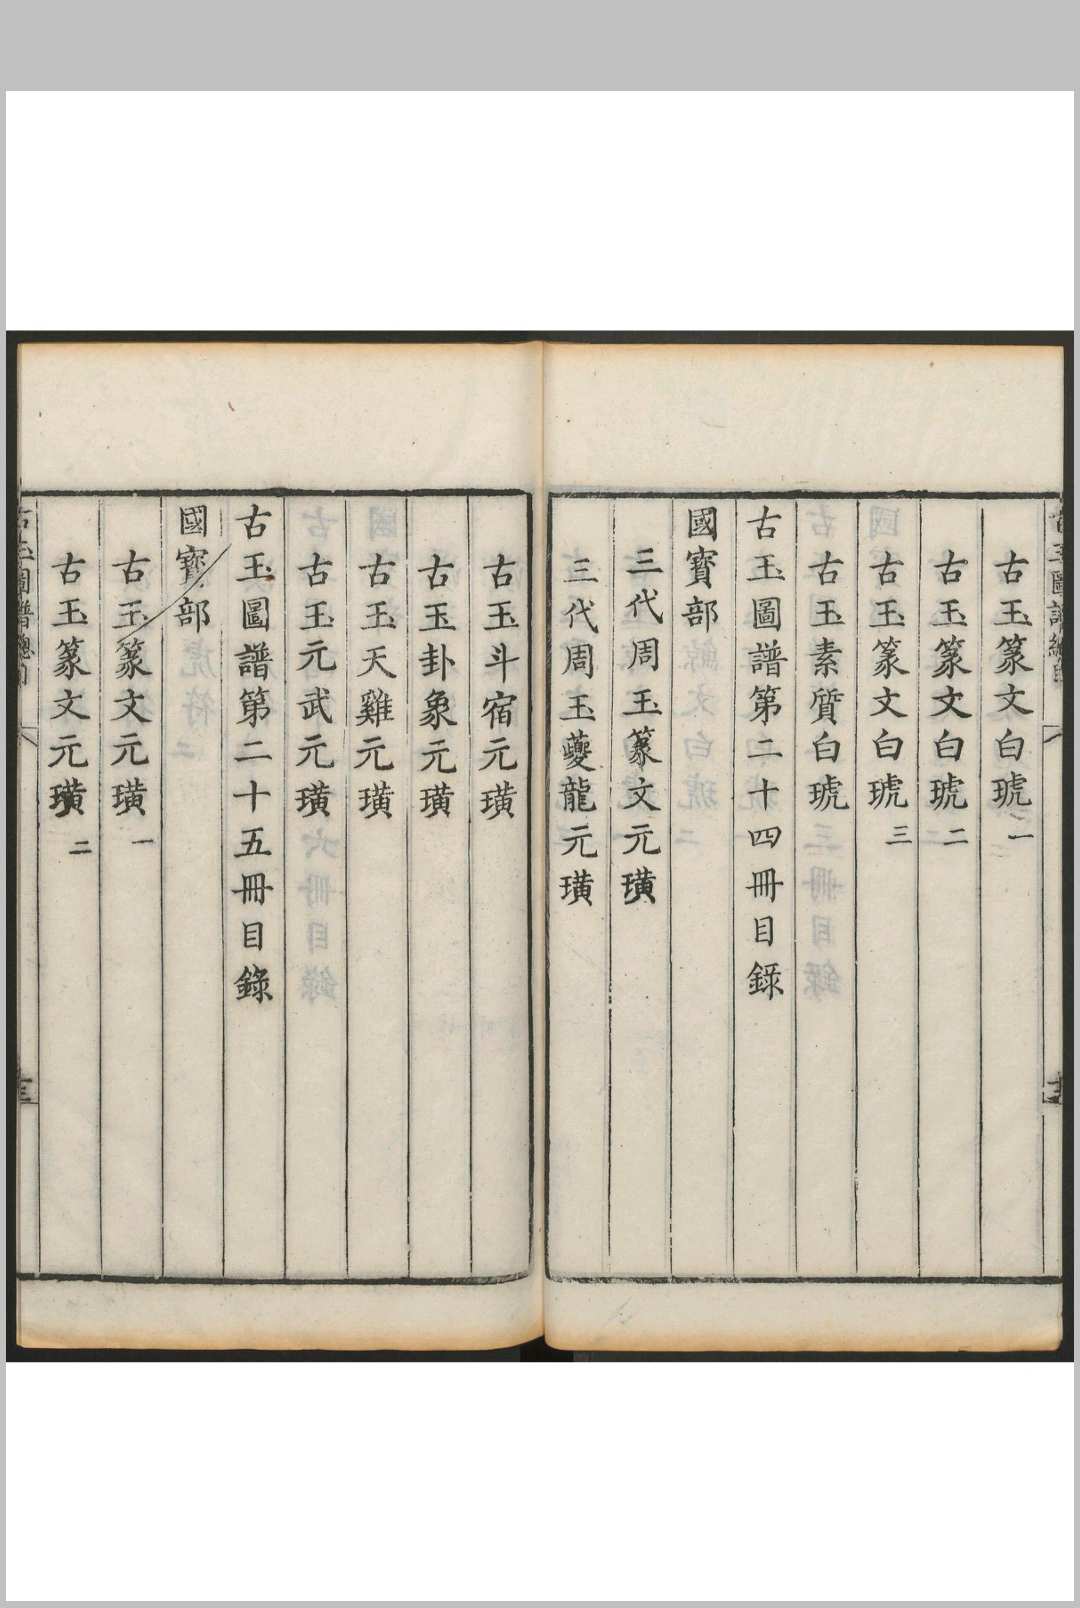 古玉篆文白琥一
古玉篆文白琥二
古玉篆文白琥三
古玉素質白琥
古玉圖譜第二十四冊目錄
國寶部
三代周玉篆文元璜
三代周玉夔龍元璜
古玉斗宿元璜
古玉卦象元璜
古玉天雞元璜
古玉元武元璜
古玉圖譜第二十五冊目錄
國寶部
古玉篆文元璜一
古玉篆文元璜二